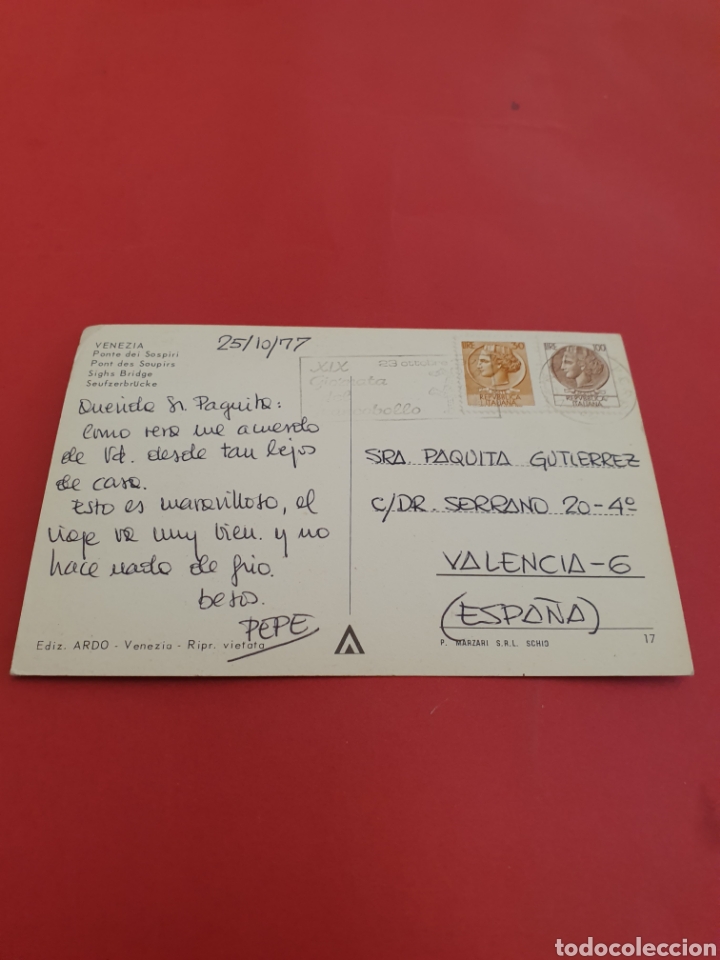 VENEZIA
Ponte dei Sospiri
Pont des Soupirs
Sighs Bridge
Seufzerbrücke
25/10/77
Querida Sr. Paquita:
como vera me acuerdo
de Vd. desde tan lejos
de casa.
Esto es maravilloso, el
viaje va muy bien. y no
hace nada de frio.
besos.
PEPE
Ediz. ARDO - Venezia - Ripr. vietata
XIX 23 ottobre
Giornata
del
francobollo
50
REPUBBLICA
ITALIANA
100
REPUBBLICA
ITALIANA
SRA. PAQUITA GUTIERREZ
C/DR. SERRANO 20-4º
VALENCIA-6
(ESPAÑA)
P. MARZARI S.R.L. SCHIO
17
todocoleccion